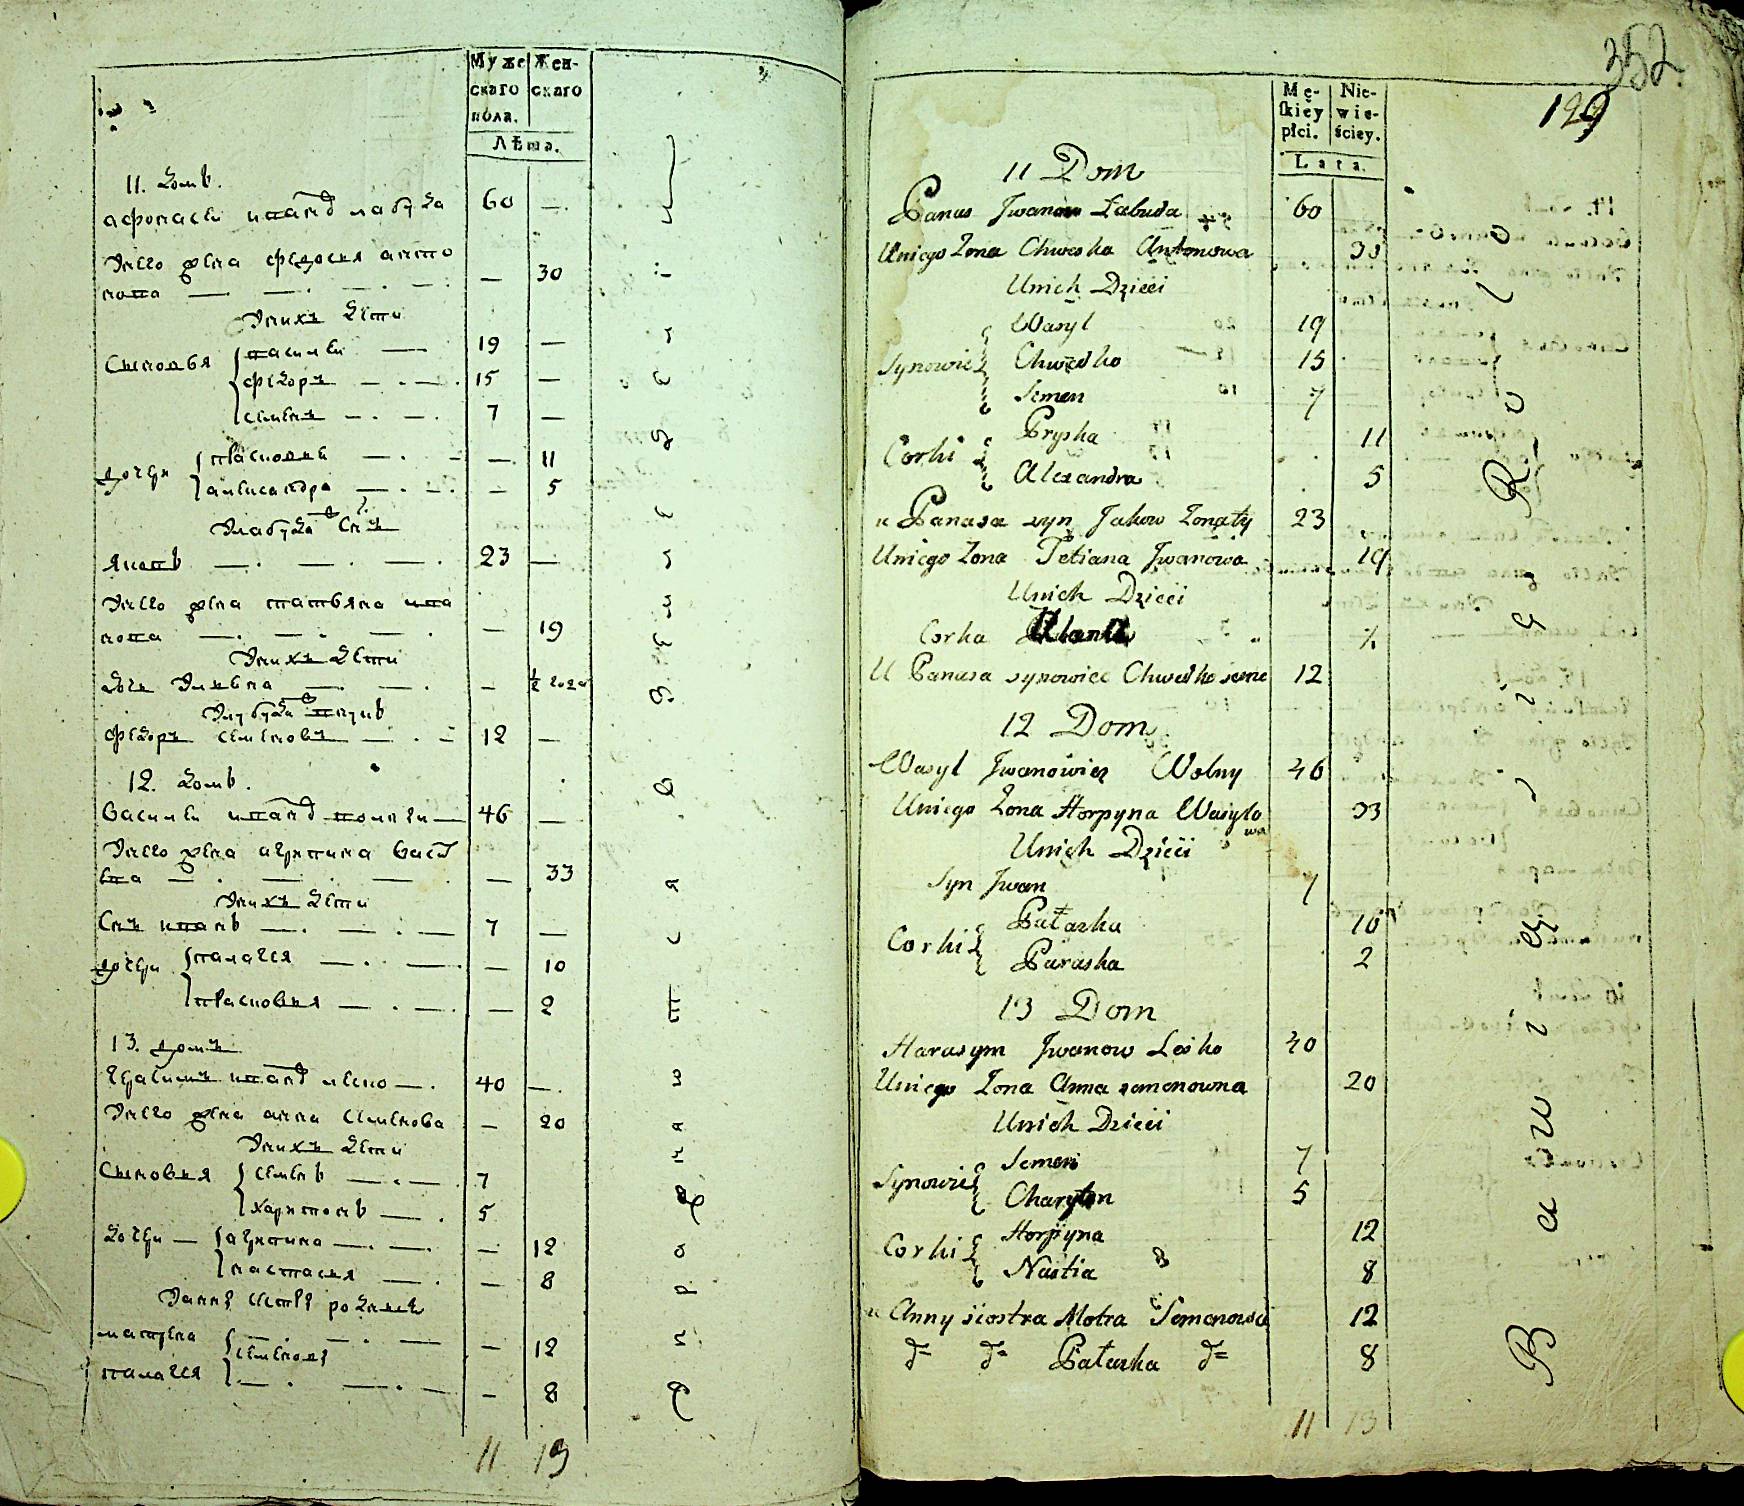 Муже
скаго
пола.
Жен-
скаго
Лѣта.
11. домъ.
афонаси иванов лабуда 60 —
Унего жена федосия анто
нова — 30
Унихъ дети
Сыновья
василеи 19 —
федоръ 15 —
семенъ 7 —
дочери
парасковия — 11
александра — 5
Улабуды Снъ
яковъ 23 —
Унего жена татьяна ива
нова — 19
Унихъ дети
дочь — 1/2 года
федоръ семеновъ 12 —
12. домъ.
василеи иванов 46 —
Унего жена агрипина васи
ева — 33
Унихъ дети
Снъ иванъ 7 —
дочери
палагея — 10
парасковия — 2
13. домъ
герасимъ иванов леско 40 —
Унего жена анна семенова — 20
Унихъ дети
Сыновья
семенъ 7
харитонъ 5
дочери
агрипина — 12
настасия — 8
Уанны сестры родныя
матрена
семеновы — 12
палагея — 8
11 19
352
129
Mę-
skiey
płci.
Nie-
wie-
ściey.
Lata.
11 Dom
Panas Jwanow Łabuda 60
Uniego Zona Chweska Antonowa 30
Unich Dzieci
Synowie
Wasyl 19
Chwedko 15
Semen 7
Corki
Pryska 11
Alexandra 5
u Panasa syn Jakow Zonaty 23
Uniego Zona Tetiana Jwanowa 19
Unich Dzieci
Corka Ulana ½
U Panasa synowiec Chwedko seme 12
12 Dom
Wasyl Jwanowicz Wolny 46
Uniego Zona Horpyna Wasylo
wa 33
Unich Dzieci
Syn Jwan 7
Corki
Pałazka 10
Paraska 2
13 Dom
Harasym Jwanow Lesko 40
Uniego Zona Anna semenowna 20
Unich Dzieci
Synowie
Semen 7
Charyton 5
Corki
Horpyna 12
Nastia 8
u Anny siostra Motra Semenowa 12
d= d= Pałazka d= 8
11 13